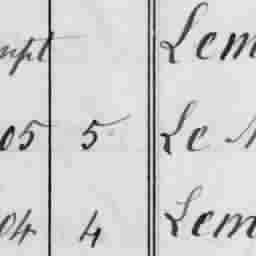 mpt Lem
05 5 Le
04 4 Lem